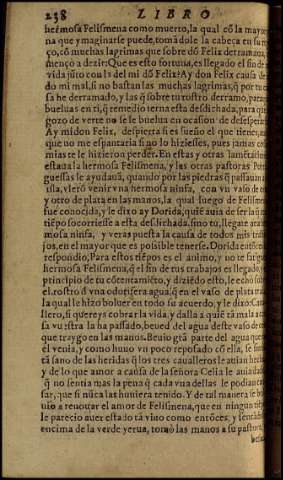 238 LIBRO
hermosa Felismena como muerto, la qual cõ la mayor
na que ymaginarse puede, tomãdole la cabeça en su re
ço, cõ muchas lagrimas que sobre dõ Felix derramaua,
menço a dezir: Que es esto fortuna, es llegado el fin de
vida jũto con la del mi dõ Felix? Ay don Felix causa de
do mi mal, si no bastan las muchas lagrimas, q̃ por tu
sa he derramado, y las q̃ sobre tu rostro derramo, para
bueluas en ti, q̃ remedio terna esta desdichada, para que
gozo de verte no se le buelua en ocasion de desesperar
Ay mi don Felix, despierta si es sueño el que tienes, aun
que no me espantaria si no lo hiziesses, pues jamas co
mias te le hizieron perder. En estas y otras lamẽtaciones
estaua la hermosa Felismena, y las otras pastoras Por
guessas le ayudauã, quando por las piedras q̃ passauan
isla, vierõ venir vna hermosa ninfa, con vn vaso de
y otro de plata en las manos, la qual luego de Felismena
fue conocida, y le dixo ay Dorida, quiẽ auia de ser la q̃
tiẽpo socorriesse a esta desdichada, sino tu, llegate aca
mosa ninfa, y veras puesta la causa de todos mis tra
jos, en el mayor que es possible tenerse. Dorida entõces
respondio, Para estos tiẽpos es el animo, y no te fatigues
hermosa Felismena, q̃ el fin de tus trabajos es llegado, y
principio de tu cõtentamiẽto, y diziẽdo esto, le echo sobre
el rostro d̃ vna odorifera agua, q̃ en el vaso de plata traya
la qual le hizo boluer en todo su acuerdo, y le dixo: Caua
llero, si quereys cobrar la vida, y dalla a quiẽ tã mala a cau
sa vuestra la ha passado, beued del agua deste vaso de
que traygo en las manos. Beuio grã parte del agua que
el venia, y como huuo vn poco reposado cõ ella, se sintio
tã sano de las heridas q̃ los tres caualleros le auian hecho
y de lo que amor a causa de la señora Celia le auia dado
q̃ no sentia mas la pena q̃ cada vna dellas le podian cau
sar, que si nũca las huuiera tenido. Y de tal manera se bol
uio a renouar el amor de Felismena, que en ningun tiẽpo
le parecio auer estado tã viuo como entõces: y sentãdose
encima de la verde yerua, tomò las manos a su pastora,